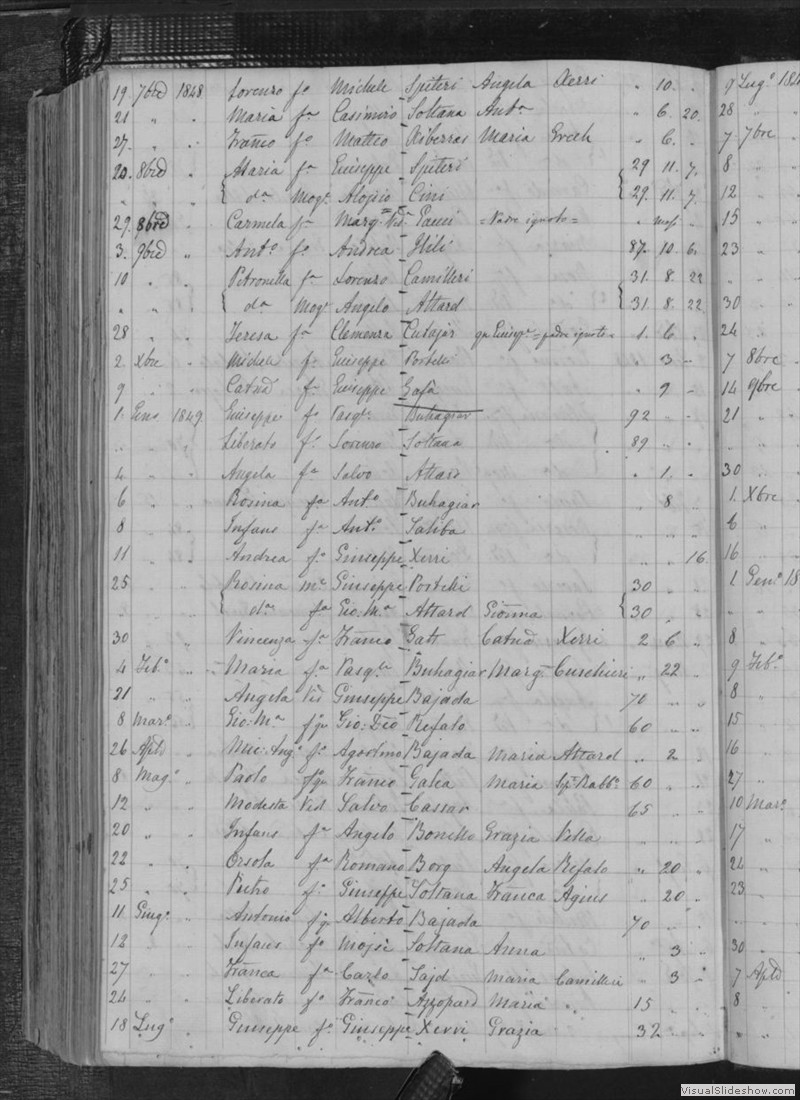 19 7bre 1848 Lorenzo fo Michele Spiteri Angela Xerri " 10. " 9 Lugo 184
21 " " Maria fa Casimiro Soltana Anta " 6. 20. 28
27. " " Franco fo Matteo Maria Grech " 6. " 7 7bre
20. 8bre Maria fa Giuseppe Spiteri 29 11. 7. 8
" " da Moge Aloisio Cini 29. 11. 7. 12
29. 8bre Carmela fa Marga Vda =Padre ignoto= " 15
3. 9bre " Anto fo Andrea 87. 10. 6. 23
10 " Petronilla fa Lorenzo Camilleri 31. 8. 22
" " da Moge Angelo Attard 31. 8. 22 30
28 " Teresa fa Clemenza Cutajar =padre ignoto= 1. 6 . 24
2 Xbre " Michele fo Giuseppe Portelli " 3 " 7 8bre
9 " Catna fa Giuseppe Gafà " 9 " 14 9bre
1. Geno 1849. Giuseppe fo Pasqle Buhagiar 92 " " 21
" " Liberato fo Lorenzo Soltana 89 " "
4 " " Angela fa Salvo Attard " 1. " 30
6 " " Rosina fa Anto Buhagiar " 8 " 1. Xbre
8 " " Infans fa Anto Saliba " " " 6
11 " " Andrea fo Giuseppe Xerri " " 16. 16
25 Rosina me Giuseppe Portelli 30 " 1 Geno 18
" da fa Gio: Ma Attard Gionna 30 "
30 " Vincenza fa Franco Gatt Catna Xerri 2 6 " 8
4 Febo " Maria fa Pasqle Buhagiar Marga Cuschieri " 22 " 9 Febo
21 " " Angela Vid Giuseppe Bajada 70 " " 8
8 Maro " Gio: Ma Gio: Refalo 60 " " 15
26 Aple " Mic: Ango fo Agostino Bajada Maria Attard " 2 " 16
8 Mago " Paolo Franco Galea Maria 60 " " 27
12 " " Modesta Vid. Salvo Cassar 65 " " 10 Maro
20 " " Infans fa Angelo Bonello Grazia Vella " " " 17
22 " " Orsola fa Romano Borg Angela Refalo " 20 " 24
25 " " Pietro fo Giuseppe Soltana Franca Agius " 20 " 23
11 Giugo " Antonio Alberto Bajada 70 " "
12 " " Infans fo Mojsè Soltana Anna " 3 " 30
27 " " Franca fa Carlo Sajd Maria Camilleri " 3 " 7 Aple
24 " " Liberato fo Franco Azzopard Maria " 15 " " 8
18 Lugo " Giuseppe fo Giuseppe Xerri Grazia 32 " "
VisualSlideshow.com